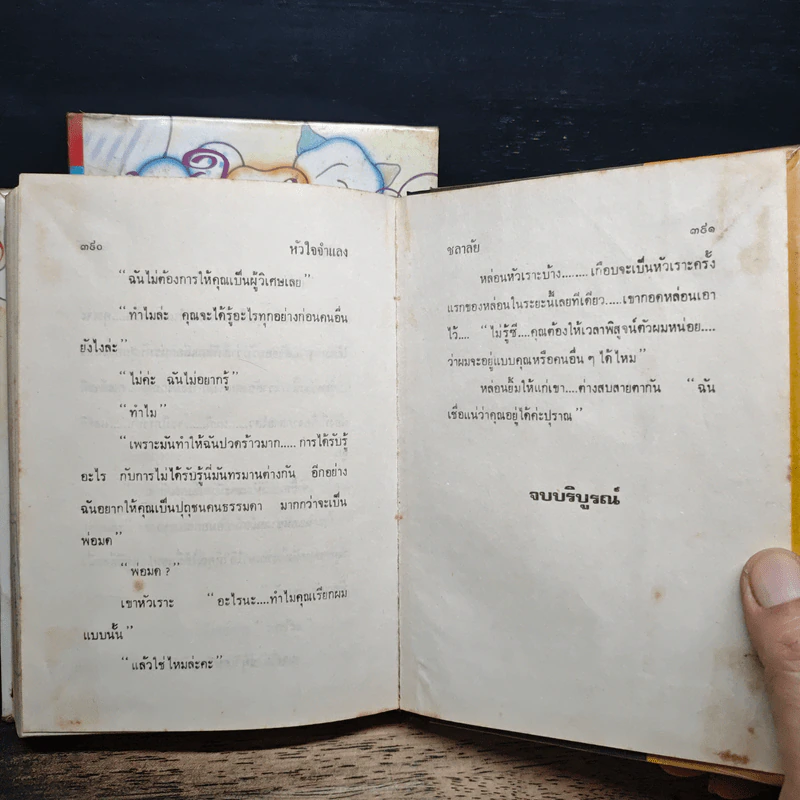 ๓๙๐ หัวใจจำแลง
“ฉันไม่ต้องการให้คุณเป็นผู้วิเศษเลย”
“ทำไมล่ะ คุณจะได้รู้อะไรทุกอย่างก่อนคนอื่น
ยังไงล่ะ”
“ไม่ค่ะ ฉันไม่อยากรู้”
“ทำไม”
“เพราะมันทำให้ฉันปวดร้าวมาก.....การได้รับรู้
อะไร กับการไม่ได้รับรู้นี่มันทรมานต่างกัน อีกอย่าง
ฉันอยากให้คุณเป็นปุถุชนคนธรรมดา มากกว่าจะเป็น
พ่อมด”
“พ่อมด?”
เขาหัวเราะ “อะไรนะ....ทำไมคุณเรียกผม
แบบนั้น”
“แล้วใช่ไหมล่ะคะ”
ชลาลัย ๓๙๑
หล่อนหัวเราะบ้าง........เกือบจะเป็นหัวเราะครั้ง
แรกของหล่อนในระยะนี้เลยทีเดียว....เขากอดหล่อนเอา
ไว้.... “ไม่รู้ซี....คุณต้องให้เวลาพิสูจน์ตัวผมหน่อย....
ว่าผมจะอยู่แบบคุณหรือคนอื่น ๆ ได้ไหม”
หล่อนยิ้มให้แก่เขา....ต่างสบสายตากัน “ฉัน
เชื่อแน่ว่าคุณอยู่ได้ค่ะปุราณ”
จบบริบูรณ์